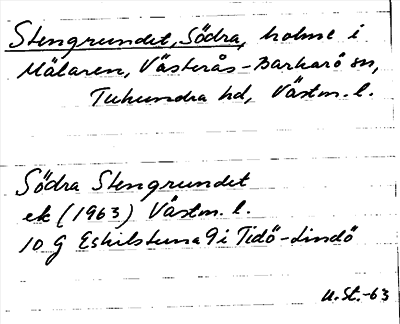 Stengrundet, Södra, holme i
Mälaren, Västerås-Barkarö sn,
Tuhundra hd, Västm. l.
Södra Stengrundet
ek (1963) Västm. l.
10 G Eskilstuna 9 i Tidö-Lindö
U.St.-63